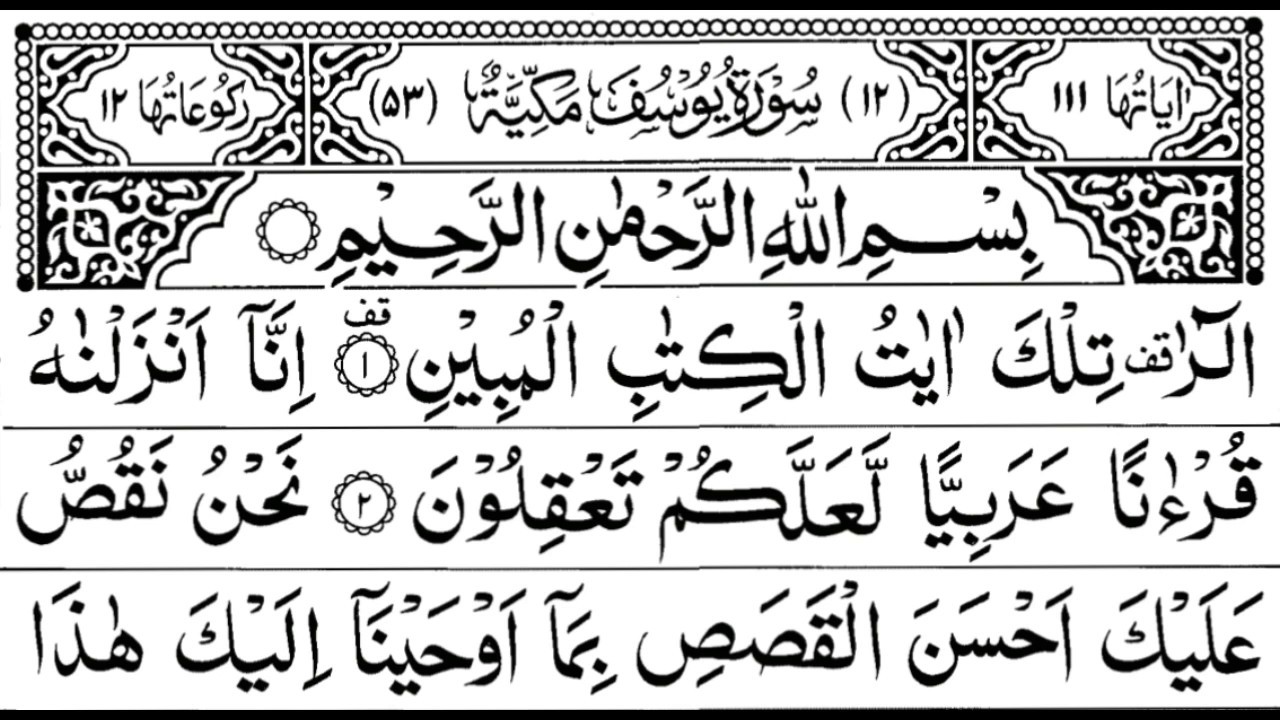 اٰيَاتُهَا ١١١ (١٢) سُوْرَةُ يُوْسُفَ مَكِّيَّةٌ (٥٣) رُكُوْعَاتُهَا ١٢
بِسْمِ اللّٰهِ الرَّحْمٰنِ الرَّحِيْمِ
الٓرٰ قف تِلْكَ اٰيٰتُ الْكِتٰبِ الْمُبِيْنِ ١ قف اِنَّآ اَنْزَلْنٰهُ
قُرْءٰنًا عَرَبِيًّا لَّعَلَّكُمْ تَعْقِلُوْنَ ٢ نَحْنُ نَقُصُّ
عَلَيْكَ اَحْسَنَ الْقَصَصِ بِمَآ اَوْحَيْنَآ اِلَيْكَ هٰذَا